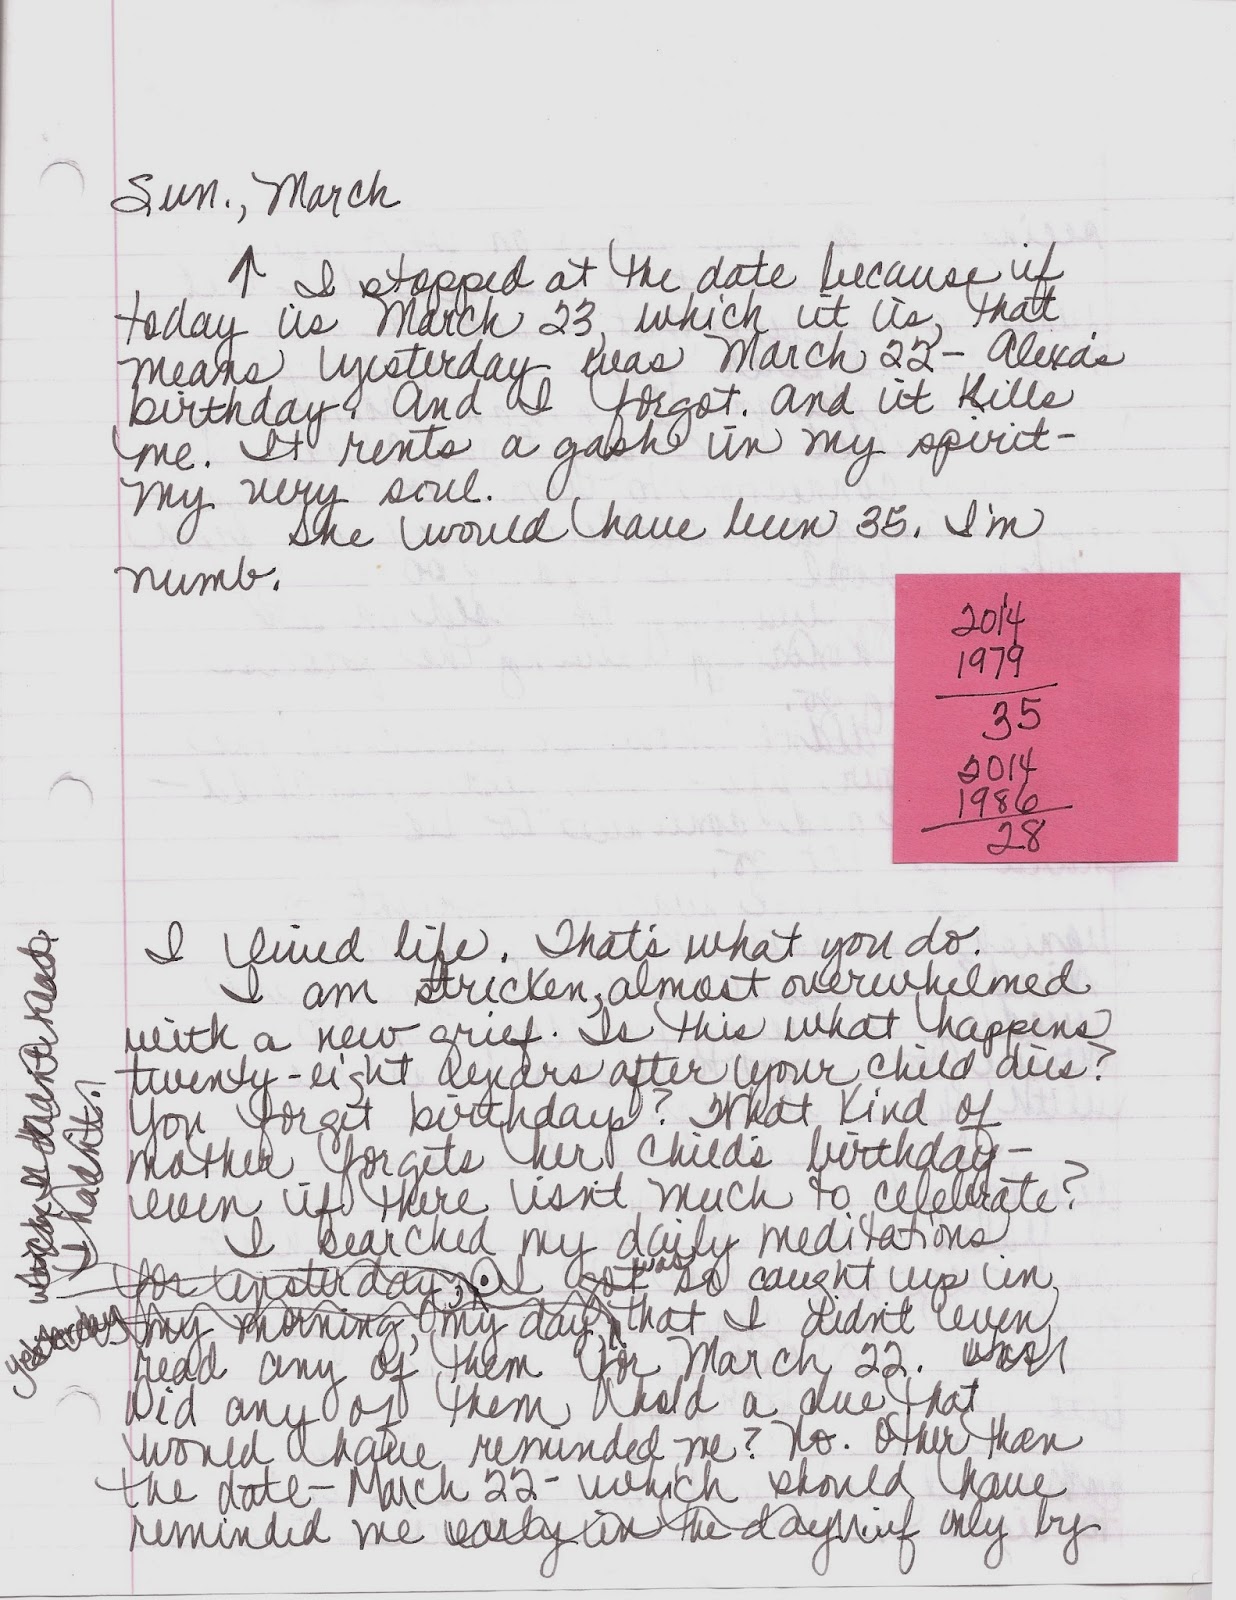 Sun., March
↑ I stopped at the date because if
today is March 23, which it is, that
means yesterday was March 22- Alexa's
birthday. And I forgot. And it kills
me. It rents a gash in my spirit-
my very soul.
She would have been 35. I'm
numb.
2014
1979
35
2014
1986
28
I lived life. That's what you do.
I am stricken, almost overwhelmed
with a new grief. Is this what happens
twenty-eight years after your child dies?
You forget birthdays? What kind of
mother forgets her child's birthday-
even if there isn't much to celebrate?
I searched my daily meditations
for yesterday, I got was so caught up in
my morning, my day, that I didn't even
read any of them for March 22.
Did any of them hold a clue that
would have reminded me? No. Other than
the date- March 22- which should have
reminded me early in the day, if only by
which I hadn't read.
I hadn't.
Yesterday